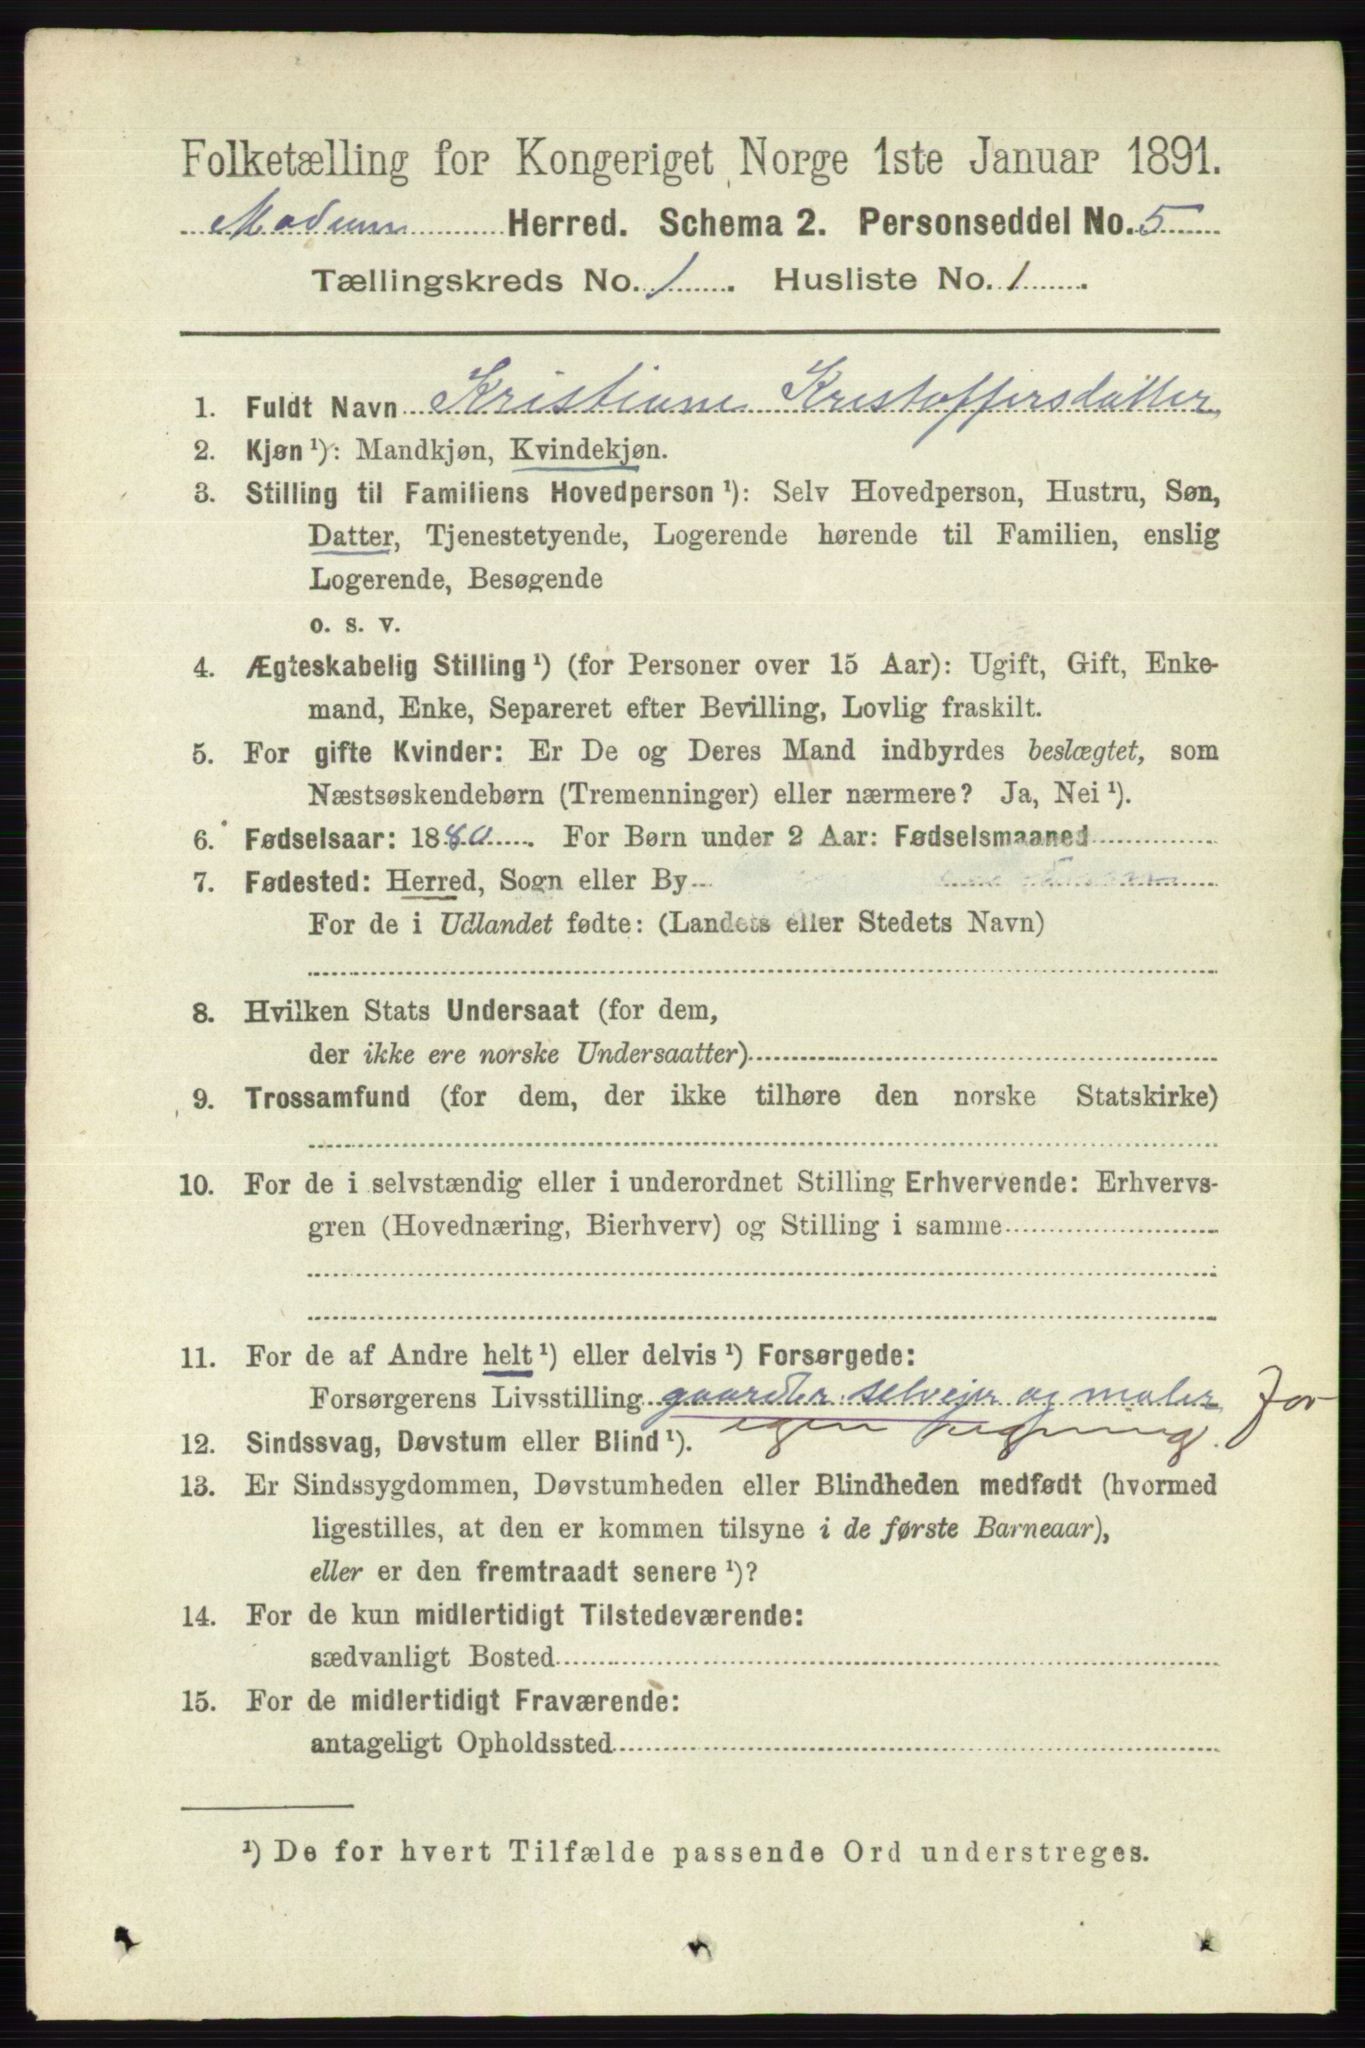 Folketælling for Kongeriget Norge 1ste Januar 1891.
Modum Herred. Schema 2. Personseddel No. 5
Tællingskreds No. 1. Husliste No. 1.
1. Fuldt Navn Kristiane Kristoffersdatter,
2. Kjøn ¹): Mandkjøn, Kvindekjøn.
3. Stilling til Familiens Hovedperson ¹): Selv Hovedperson, Hustru, Søn,
Datter, Tjenestetyende, Logerende hørende til Familien, enslig
Logerende, Besøgende
o. s. v.
4. Ægteskabelig Stilling ¹) (for Personer over 15 Aar): Ugift, Gift, Enke-
mand, Enke, Separeret efter Bevilling, Lovlig fraskilt.
5. For gifte Kvinder: Er De og Deres Mand indbyrdes beslægtet, som
Næstsøskendebørn (Tremenninger) eller nærmere? Ja, Nei ¹).
6. Fødselsaar: 1880. For Børn under 2 Aar: Fødselsmaaned
7. Fødested: Herred, Sogn eller By
For de i Udlandet fødte: (Landets eller Stedets Navn)
8. Hvilken Stats Undersaat (for dem,
der ikke ere norske Undersaatter)
9. Trossamfund (for dem, der ikke tilhøre den norske Statskirke)
10. For de i selvstændig eller i underordnet Stilling Erhvervende: Erhvervs-
gren (Hovednæring, Bierhverv) og Stilling i samme
11. For de af Andre helt ¹) eller delvis ¹) Forsørgede:
Forsørgerens Livsstilling gaardbr. selveier og maler for
egen regning.
12. Sindssvag, Døvstum eller Blind ¹).
13. Er Sindssygdommen, Døvstumheden eller Blindheden medfødt (hvormed
ligestilles, at den er kommen tilsyne i de første Barneaar),
eller er den fremtraadt senere ¹)?
14. For de kun midlertidigt Tilstedeværende:
sædvanligt Bosted
15. For de midlertidigt Fraværende:
antageligt Opholdssted
¹) De for hvert Tilfælde passende Ord understreges.